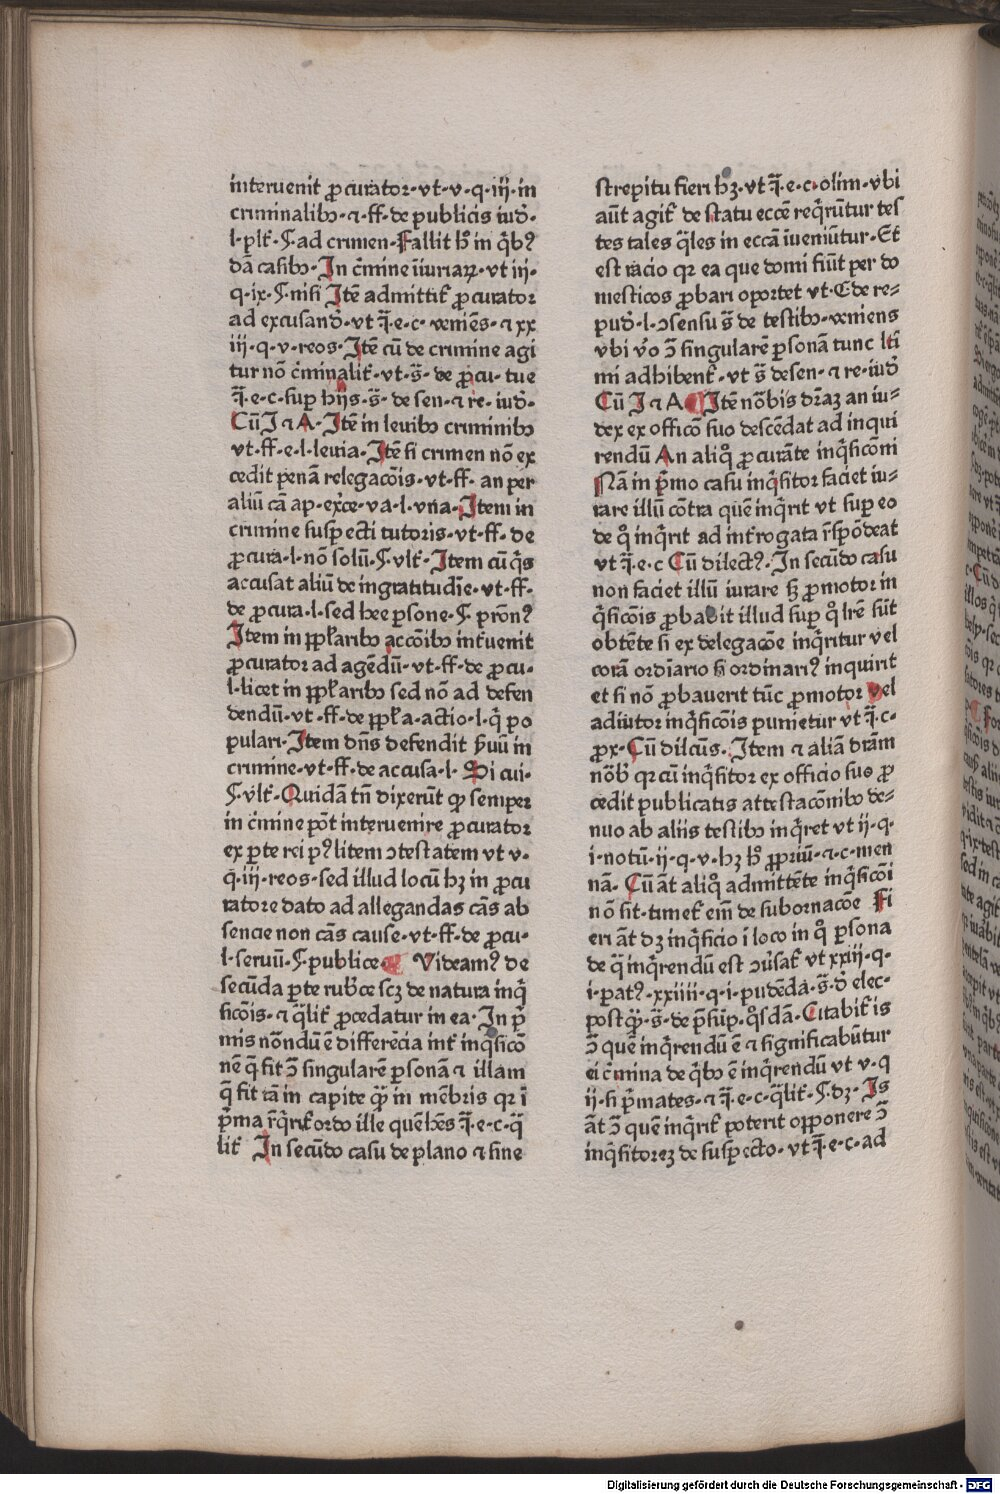 interuenit ꝓcurator·vt·v·q·iij·in
criminalibꝰ·⁊·ff·de publicis iud̄·
l·plꝉ·§·ad crimen·Fallit ħ in q̄bꝰ
dā casibꝰ·In c̄mine iiuriaꝝ·vt iij·
q·ix·§·nisi Itē admittiꝉ ꝓcurator
ad excusand̄·vt q̄·e·c·veniēs·⁊ xx
iij·q·v·reos·Itē cū de crimine agi
tur nō c̄minaliꝉ·vt·s̄·de ꝓcu·tue
q̄·e·c·suꝑ hijs·s̄·de sen·⁊ re·iud̄·
Cū I ⁊ A·Itē in leuibꝰ criminibꝰ
vt·ff·e·l·leuia·Itē si crimen nō ex
cedit penā relegacōis·vt·ff·an per
aliū cā ap·exc̄e·va·l·vna·Item in
crimine suspecti tutoris·vt·ff·de
ꝓcura·l·nō solū·§·vlꝉ·Item cū q̄s
accusat aliū de ingratitudīe·vt·ff·
de ꝓcura·l·sed hee ꝑsone·§·pronꝰ
Item in ppꝉaribꝰ accōibꝰ inꝉuenit
ꝓcurator ad agēdū·vt·ff·de ꝓcu·
l·licet in ppꝉaribꝰ sed nō ad defen
dendū·vt·ff·de ppꝉa·actio·l·q̄ po
pulari·Item dn̄s defendit ẜuū in
crimine·vt·ff·de accusa·l·Si cui·
§·vlꝉ·Quidā tn̄ dixerūt ꝙ semper
in c̄mine pōt interuenire ꝓcurator
ex ꝑte rei pꝰ litem ↄtestatem vt v·
q·iij·reos·sed illud locū hꝫ in ꝓcu
ratore dato ad allegandas cās ab
sencie non cās cause·vt·ff·de ꝓcu·
l·seruū·§·publice· Videamꝰ de
secūda ꝑte rubꝰce scꝫ de natura inq̄
sicōis·⁊ q̄liꝉ ꝓcedatur in ea·In p̄
mis nōndū ē differēcia inꝉ inq̄sicō
nē q̄ fit ↄ̄ singularē ꝑsonā ⁊ illam
q̄ fit tā in capite ꝙ̄ in mēbris qꝛ ī
p̄ma r̄q̄riꝉ ordo ille quē hēs q̄·e·c·q̄
liꝉ In secūdo casu de plano ⁊ sine
strepitu fieri hꝫ·vt q̄·e·c·olim·vbi
aūt agiꝉ de statu ecce req̄rūtur tes
tes tales q̄les in eccā iueniūtur·Et
est racio qꝛ ea que domi fiūt per do
mesticos ꝓbari oportet vt·C de re⸗
pud̄·l·ↄsensu s̄ de testibꝰ·veniens
vbi v̊o ↄ̄ singularē ꝑsonā tunc lt̄i
mi adhibenꝉ·vt s̄ de sen·⁊ re·iud̄
Cū I ⁊ A Itē nōbis dr̄aꝫ an iu⸗
dex ex officō suo descēdat ad inqui
rendū An aliq̊ ꝓcurāte inq̄sicōmi
Nā in p̄mo casu inq̄sitor faciet iu⸗
rare illū cōtra quē inq̄rit vt suꝑ eo
de q̊ inq̄rit ad inꝉrogata r̄spōdeat
vt q̄·e·c Cū dilectꝰ·In secūdo casu
non faciet illū iurare sꝫ ꝓmotor in
q̄sicōis ꝓbabit illud suꝑ q̊ lr̄e sūt
obtēte si ex delegacōe inq̄ritur vel
corā ordīario si ordinariꝰ inquirit
et si nō ꝓbauerit tūc ꝓmotor vel
adiutor inq̄sicōis punietur vt q̄·c·
ꝓx·Cū dilcūs·Item ⁊ aliā dr̄am
nōbꝰ qꝛ cū inq̄sitor ex officio suo ꝓ
cedit publicatis attestacōnibꝰ de⸗
nuo ab aliis testibꝰ inq̄ret vt ij·q·
i·notū·ij·q·v·hꝫ ħ ꝓpriū·⁊·c·men
nā·Cū āt aliq̊ admittēte inq̄sicōi
nō sit·timeꝉ em̄ de subornacōe Fi
eri āt dꝫ inq̄sicio ī loco in q̊ ꝑsona
de q̄ inq̄rendū est ↄuersaꝉ vt xxij·q·
i·patꝰ·xxiiii·q·i·pudēda·s̄·d̄ elec·
post ꝙ̄·s̄·de p̄sūp·q̊sdā·Citabiꝉ is
ↄ̄ quē inq̄rendū ē ⁊ significabūtur
ei c̄mina de q̄bꝰ ē inq̄rendū vt v·q
ij·si p̄mates·⁊ q̄·e·c·q̄liꝉ·§·dꝫ·Is
āt ↄ̄ quē inq̄riꝉ poterit opponere ↄ̄
inq̄sitoreꝫ de suspecto·vt q̄·e·c·ad
Digitalisierung gefördert durch die Deutsche Forschungsgemeinschaft · DFG